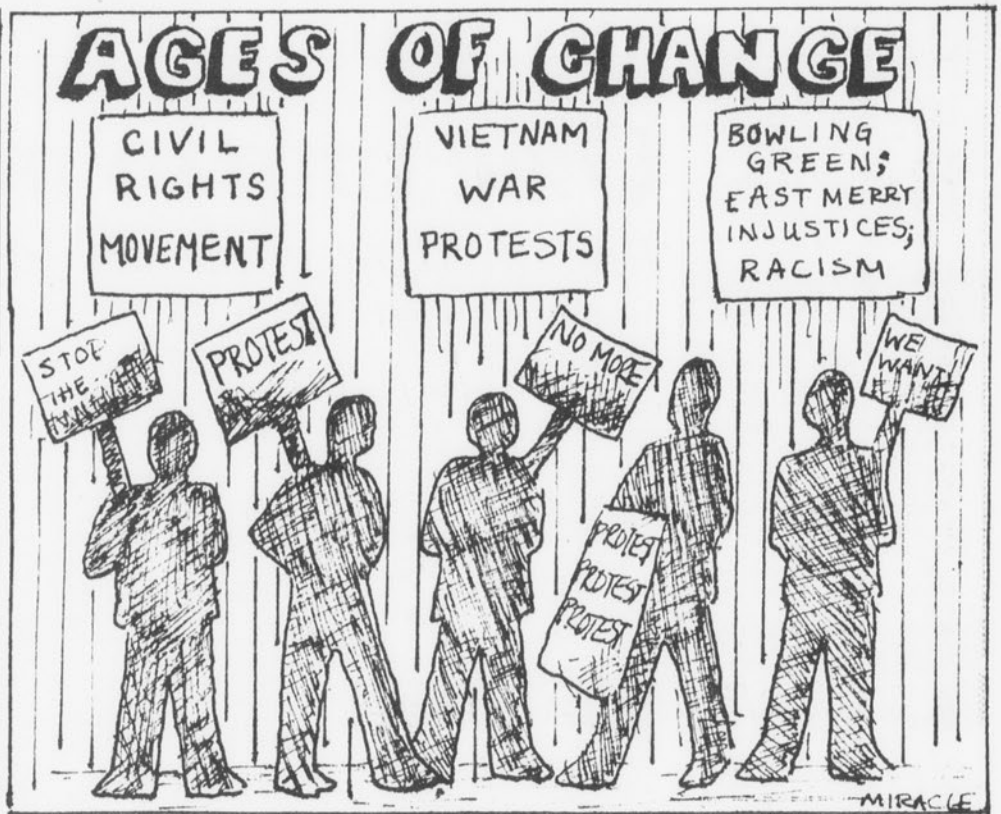 AGES OF CHANGE
CIVIL
RIGHTS
MOVEMENT
VIETNAM
WAR
PROTESTS
BOWLING
GREEN;
EAST MERRY
INJUSTICES;
RACISM
STOP
THE
PROTEST
NO MORE
PROTEST
PROTEST
PROTEST
WE
WANT
MIRACLE